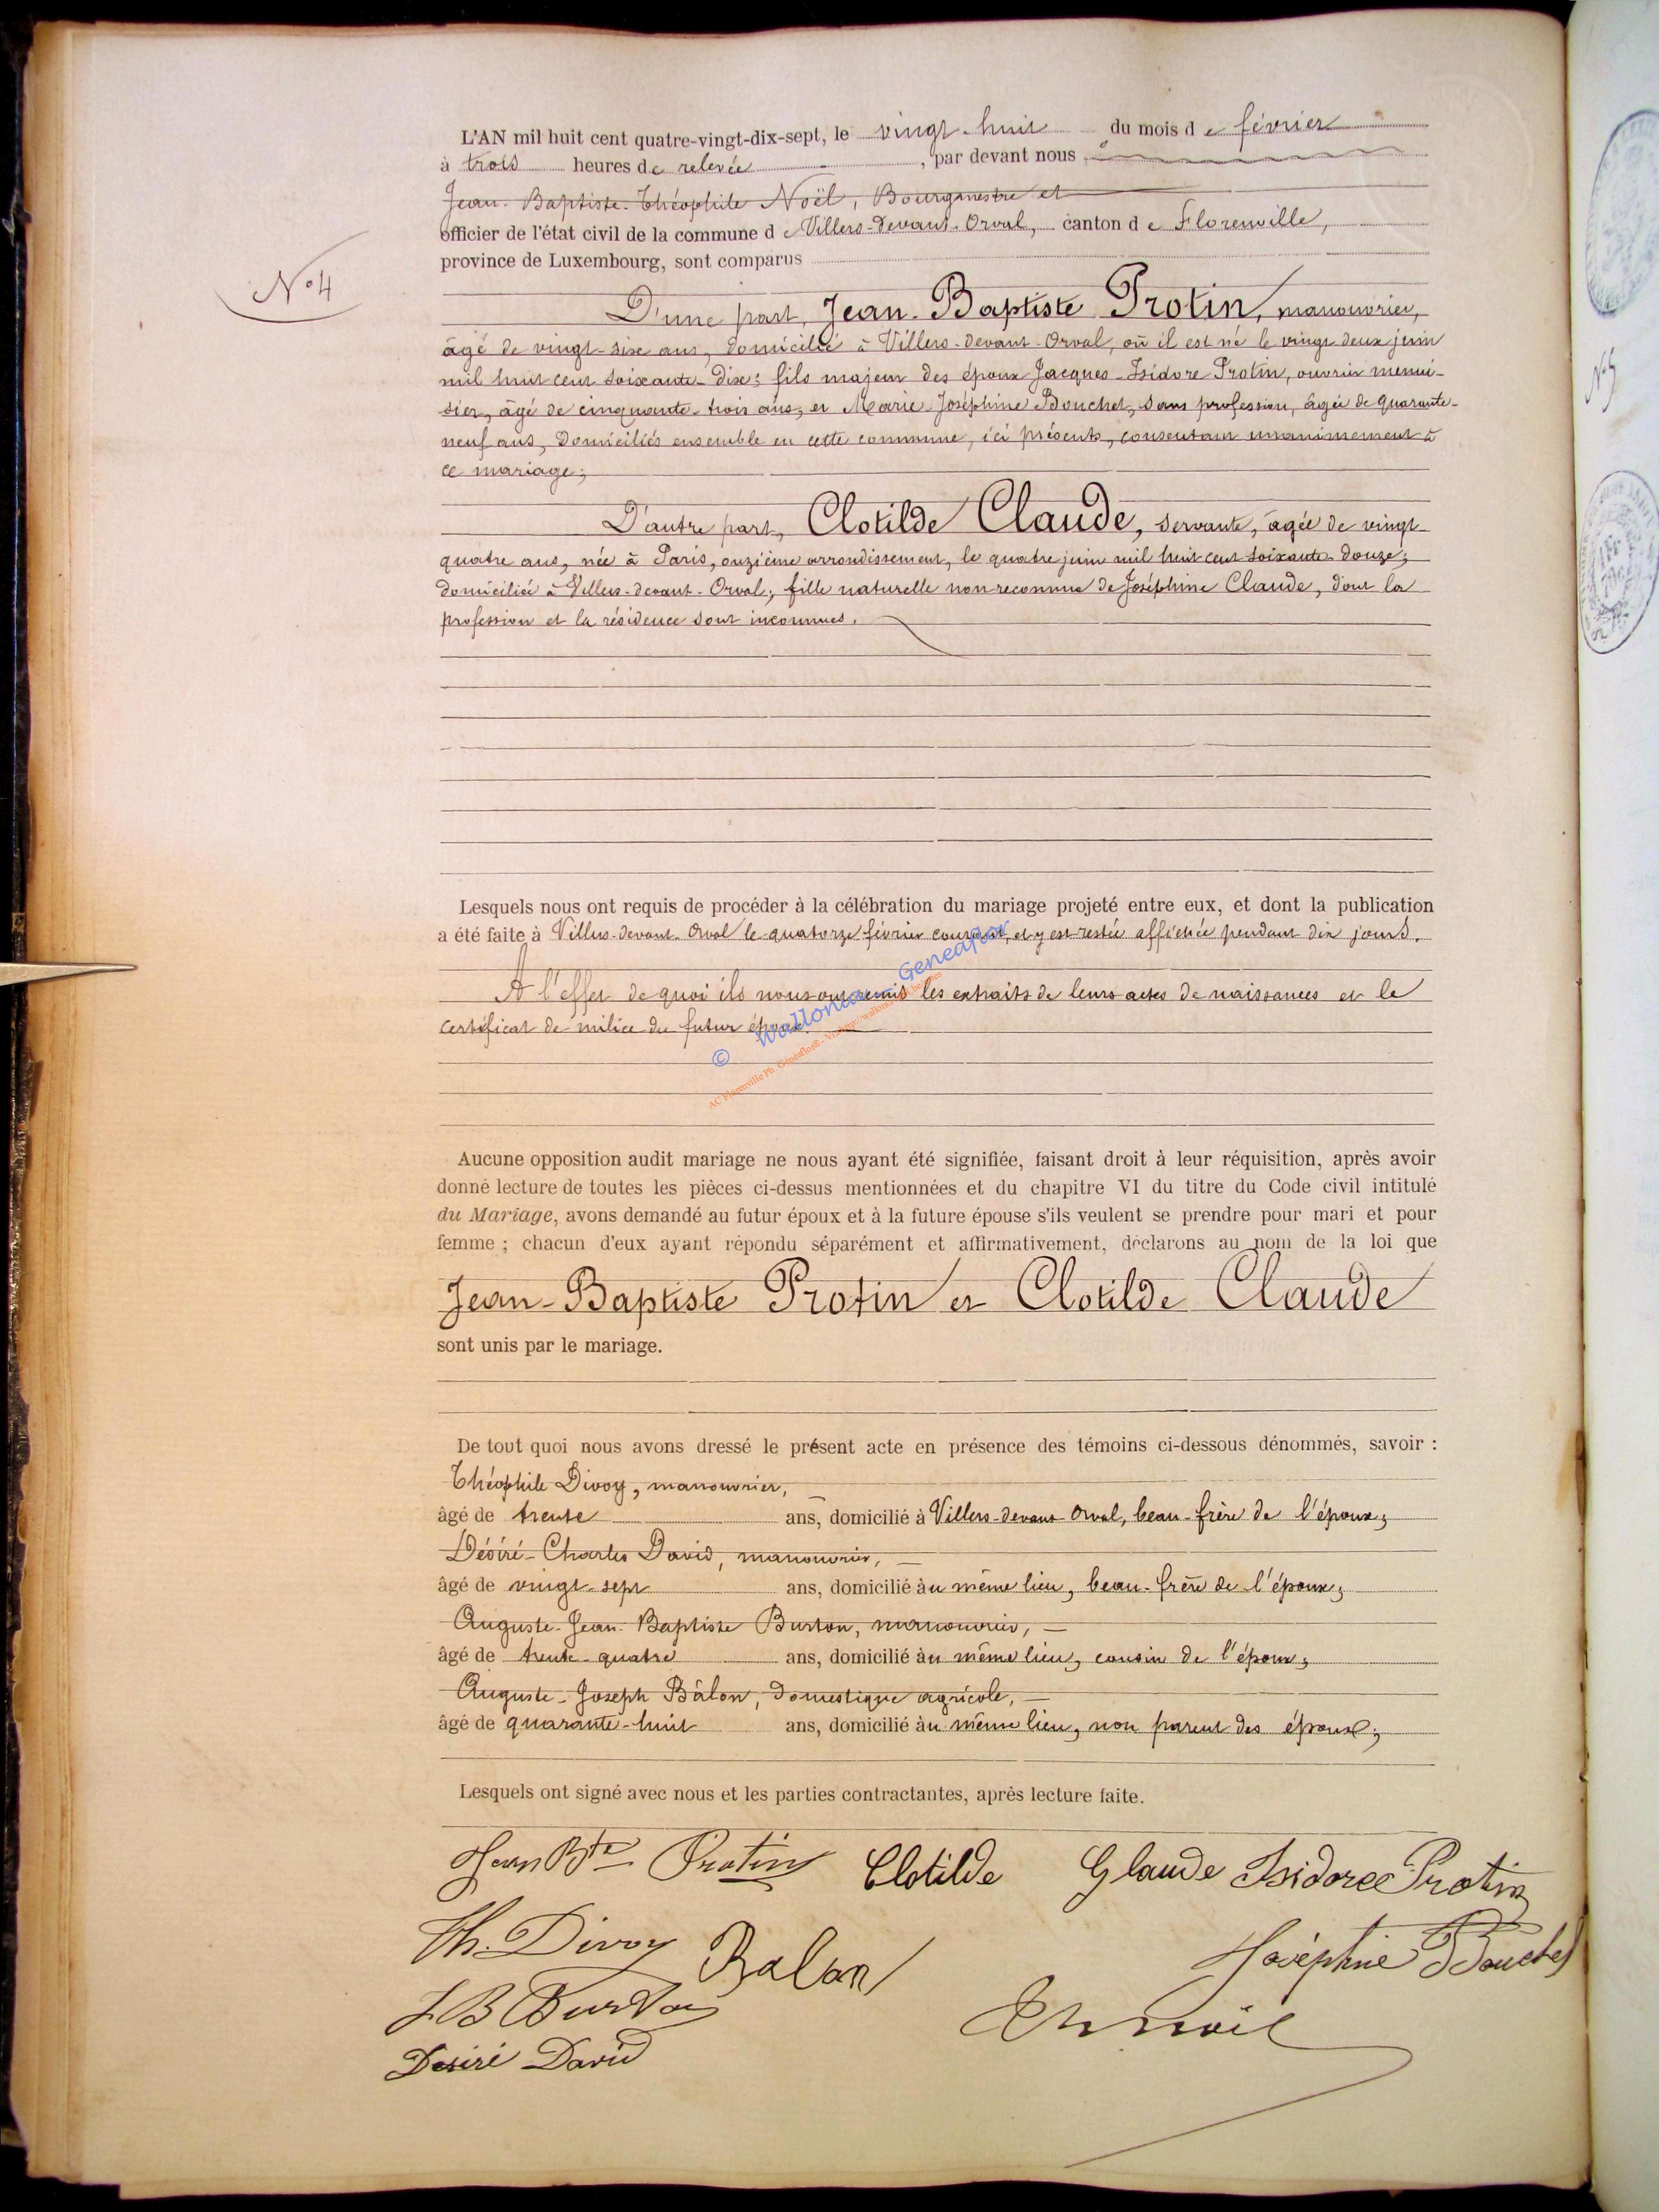 L'AN mil huit cent quatre-vingt-dix-sept, le vingt-huit du mois de février
à trois heures de relevée, par devant nous
Jean-Baptiste-Théophile Noël, Bourgmestre et
officier de l'état civil de la commune de Villers-devant-Orval, canton de Florenville,
province de Luxembourg, sont comparus
N° 4
D'une part, Jean-Baptiste Protin, manouvrier,
âgé de vingt-six ans, domicilié à Villers-devant-Orval, où il est né le vingt deux juin
mil huit cent soixante-dix; fils majeur des époux Jacques-Isidore Protin, ouvrier menui-
sier, âgé de cinquante-trois ans, et Marie-Joséphine Bouchet, sans profession, âgée de quarante-
neuf ans, domiciliés ensemble en cette commune, ici présents, consentant unanimement à
ce mariage;
D'autre part, Clotilde Claude, servante, âgée de vingt-
quatre ans, née à Paris, onzième arrondissement, le quatre juin mil huit cent soixante-douze;
domiciliée à Villers-devant-Orval; fille naturelle non reconnue de Joséphine Claude, dont la
profession et la résidence sont inconnues.
Lesquels nous ont requis de procéder à la célébration du mariage projeté entre eux, et dont la publication
a été faite à Villers-devant-Orval le quatorze février courant, et y est restée affichée pendant dix jours.
A l'effet de quoi ils nous ont remis les extraits de leurs actes de naissances et le
certificat de milice du futur époux.
© Wallonia Geneaflor
AC Florenville Ph. Généaflor®
Aucune opposition audit mariage ne nous ayant été signifiée, faisant droit à leur réquisition, après avoir
donné lecture de toutes les pièces ci-dessus mentionnées et du chapitre VI du titre du Code civil intitulé
du Mariage, avons demandé au futur époux et à la future épouse s'ils veulent se prendre pour mari et pour
femme ; chacun d'eux ayant répondu séparément et affirmativement, déclarons au nom de la loi que
Jean-Baptiste Protin et Clotilde Claude
sont unis par le mariage.
De tout quoi nous avons dressé le présent acte en présence des témoins ci-dessous dénommés, savoir :
Théophile Divoy, manouvrier,
âgé de trente ans, domicilié à Villers-devant-Orval, beau-frère de l'époux;
Désiré-Charles David, manouvrier,
âgé de vingt-sept ans, domicilié au même lieu, beau-frère de l'époux;
Auguste-Jean-Baptiste Burton, manouvrier,
âgé de trente-quatre ans, domicilié au même lieu, cousin de l'époux;
Auguste-Joseph Bâlon, domestique agricole,
âgé de quarante-huit ans, domicilié au même lieu, non parent des époux;
Lesquels ont signé avec nous et les parties contractantes, après lecture faite.
Jean Bte Protin Clotilde Glaude Isidore Protin
Th. Divoy Balon Joséphine Bouchet
J B Burton Th Noël
Désiré David
N° 5